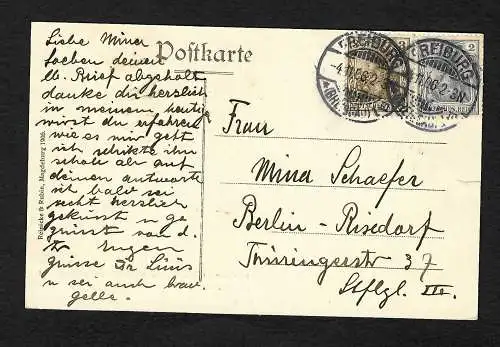 Postkarte
Liebe Mina
Soeben deinen
lb. Brief abgeholt
danke dir herzlich
in meinem heutig
wirst du erfahren
wie es mir geht
ich schikte ihn
schon ab auf
deinen antworte
ich bald sei
recht herzlich
geküsst u ge
grüsst von d.
Eugen
grüsse Dr Luis
u sei auch brav
gelle.
Reinicke & Rubin, Magdeburg 1906.
FREIBURG
-4.11.06.2-3N.
FREIBURG
.11.06.2-3N.
3
2
Frau
Mina Schaefer
Berlin-Rixdorf
Thüringerstr 37
Stflgl. III.